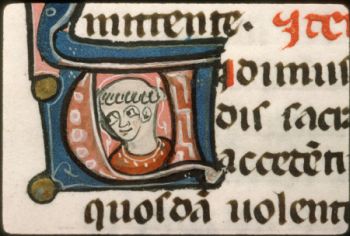 mittente. Ite
Vidimus
dis sac
accetēn
quosdā uolent